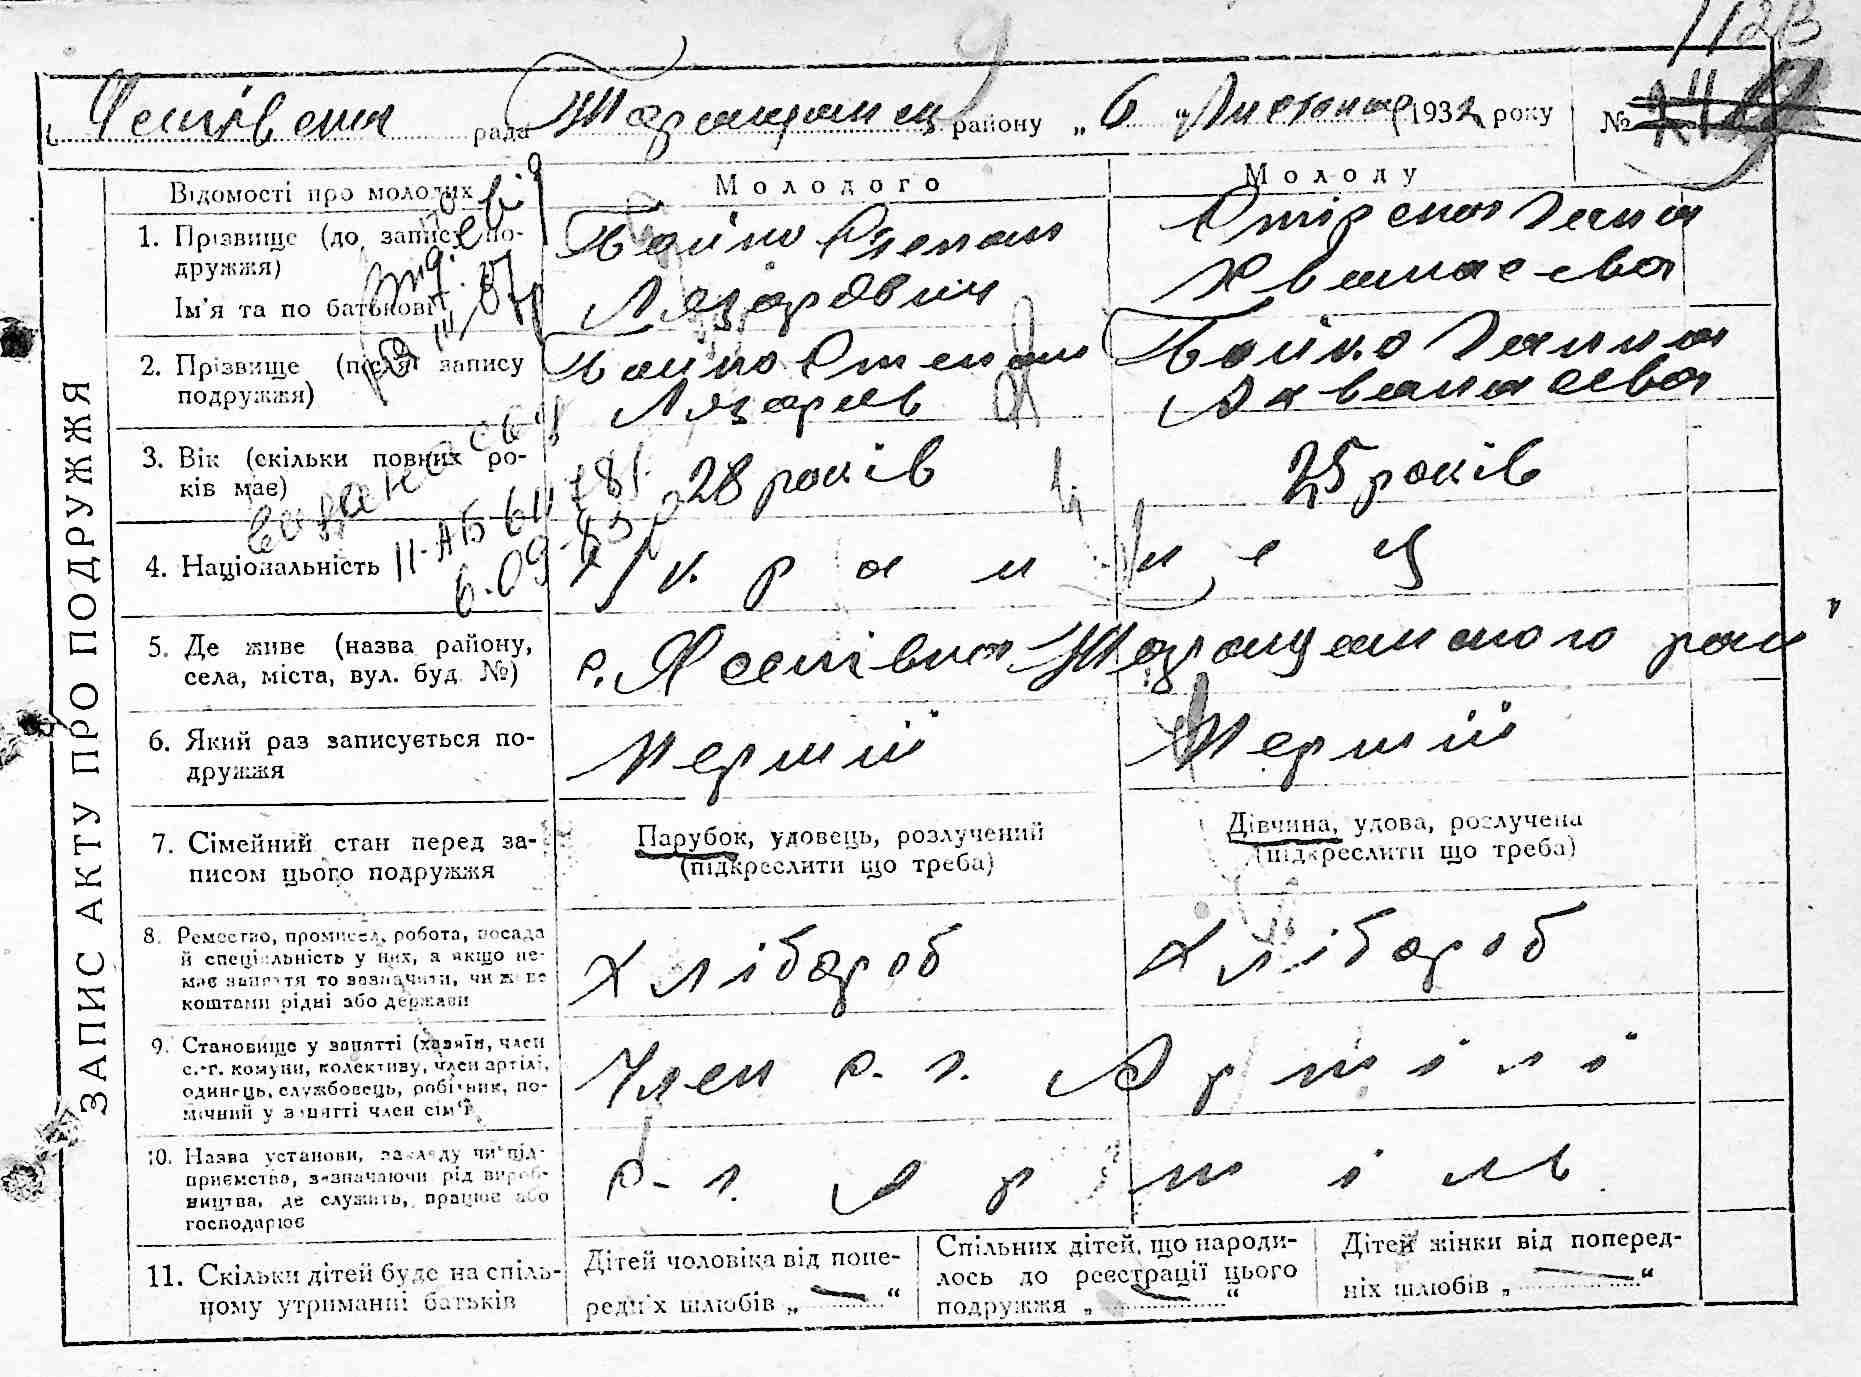 112в
рада Таращанськ району „6" Листопад 1932 року №
Відомості про молодих
Молодого
Молоду
1. Прізвище (до запису по-
дружжя)
Ім'я та по батькові
Бойко Степан
Лазарович
Ганна
2. Прізвище (після запису
подружжя)
Бойко Степан
Лазарев
Бойко Ганна
3. Вік (скільки повних ро-
ків має)
28 років
25 років
II-АБ
6.09
4. Національність
Украинец
5. Де живе (назва району,
села, міста, вул. буд. №)
с. Таращанського рай
6. Який раз записується по-
дружжя
Перший
Перший
7. Сімейний стан перед за-
писом цього подружжя
Парубок, удовець, розлучений
(підкреслити що треба)
Дівчина, удова, розлучена
(підкреслити що треба)
8. Ремество, промисел, робота, посада
й спеціальність у них, а якщо не-
має заняття то зазначити, чи живе
коштами рідні або держави
Хлібороб
Хлібороб
9. Становище у занятті (хазяїн, член
с.-г. комуни, колективу, член артілі,
одинець, службовець, робітник, по-
мічний у занятті член сім'ї
Член с. г. Артілі
10. Назва установи, закладу чи під-
приємства, зазначаючи рід вироб-
ництва, де служить, працює або
господарює
с-г. артіль
11. Скільки дітей буде на спіль-
ному утриманні батьків
Дітей чоловіка від попе-
редніх шлюбів „ — "
Спільних дітей, що народи-
лось до реєстрації цього
подружжя „ — "
Дітей жінки від поперед-
ніх шлюбів „ — "
ЗАПИС АКТУ ПРО ПОДРУЖЖЯ